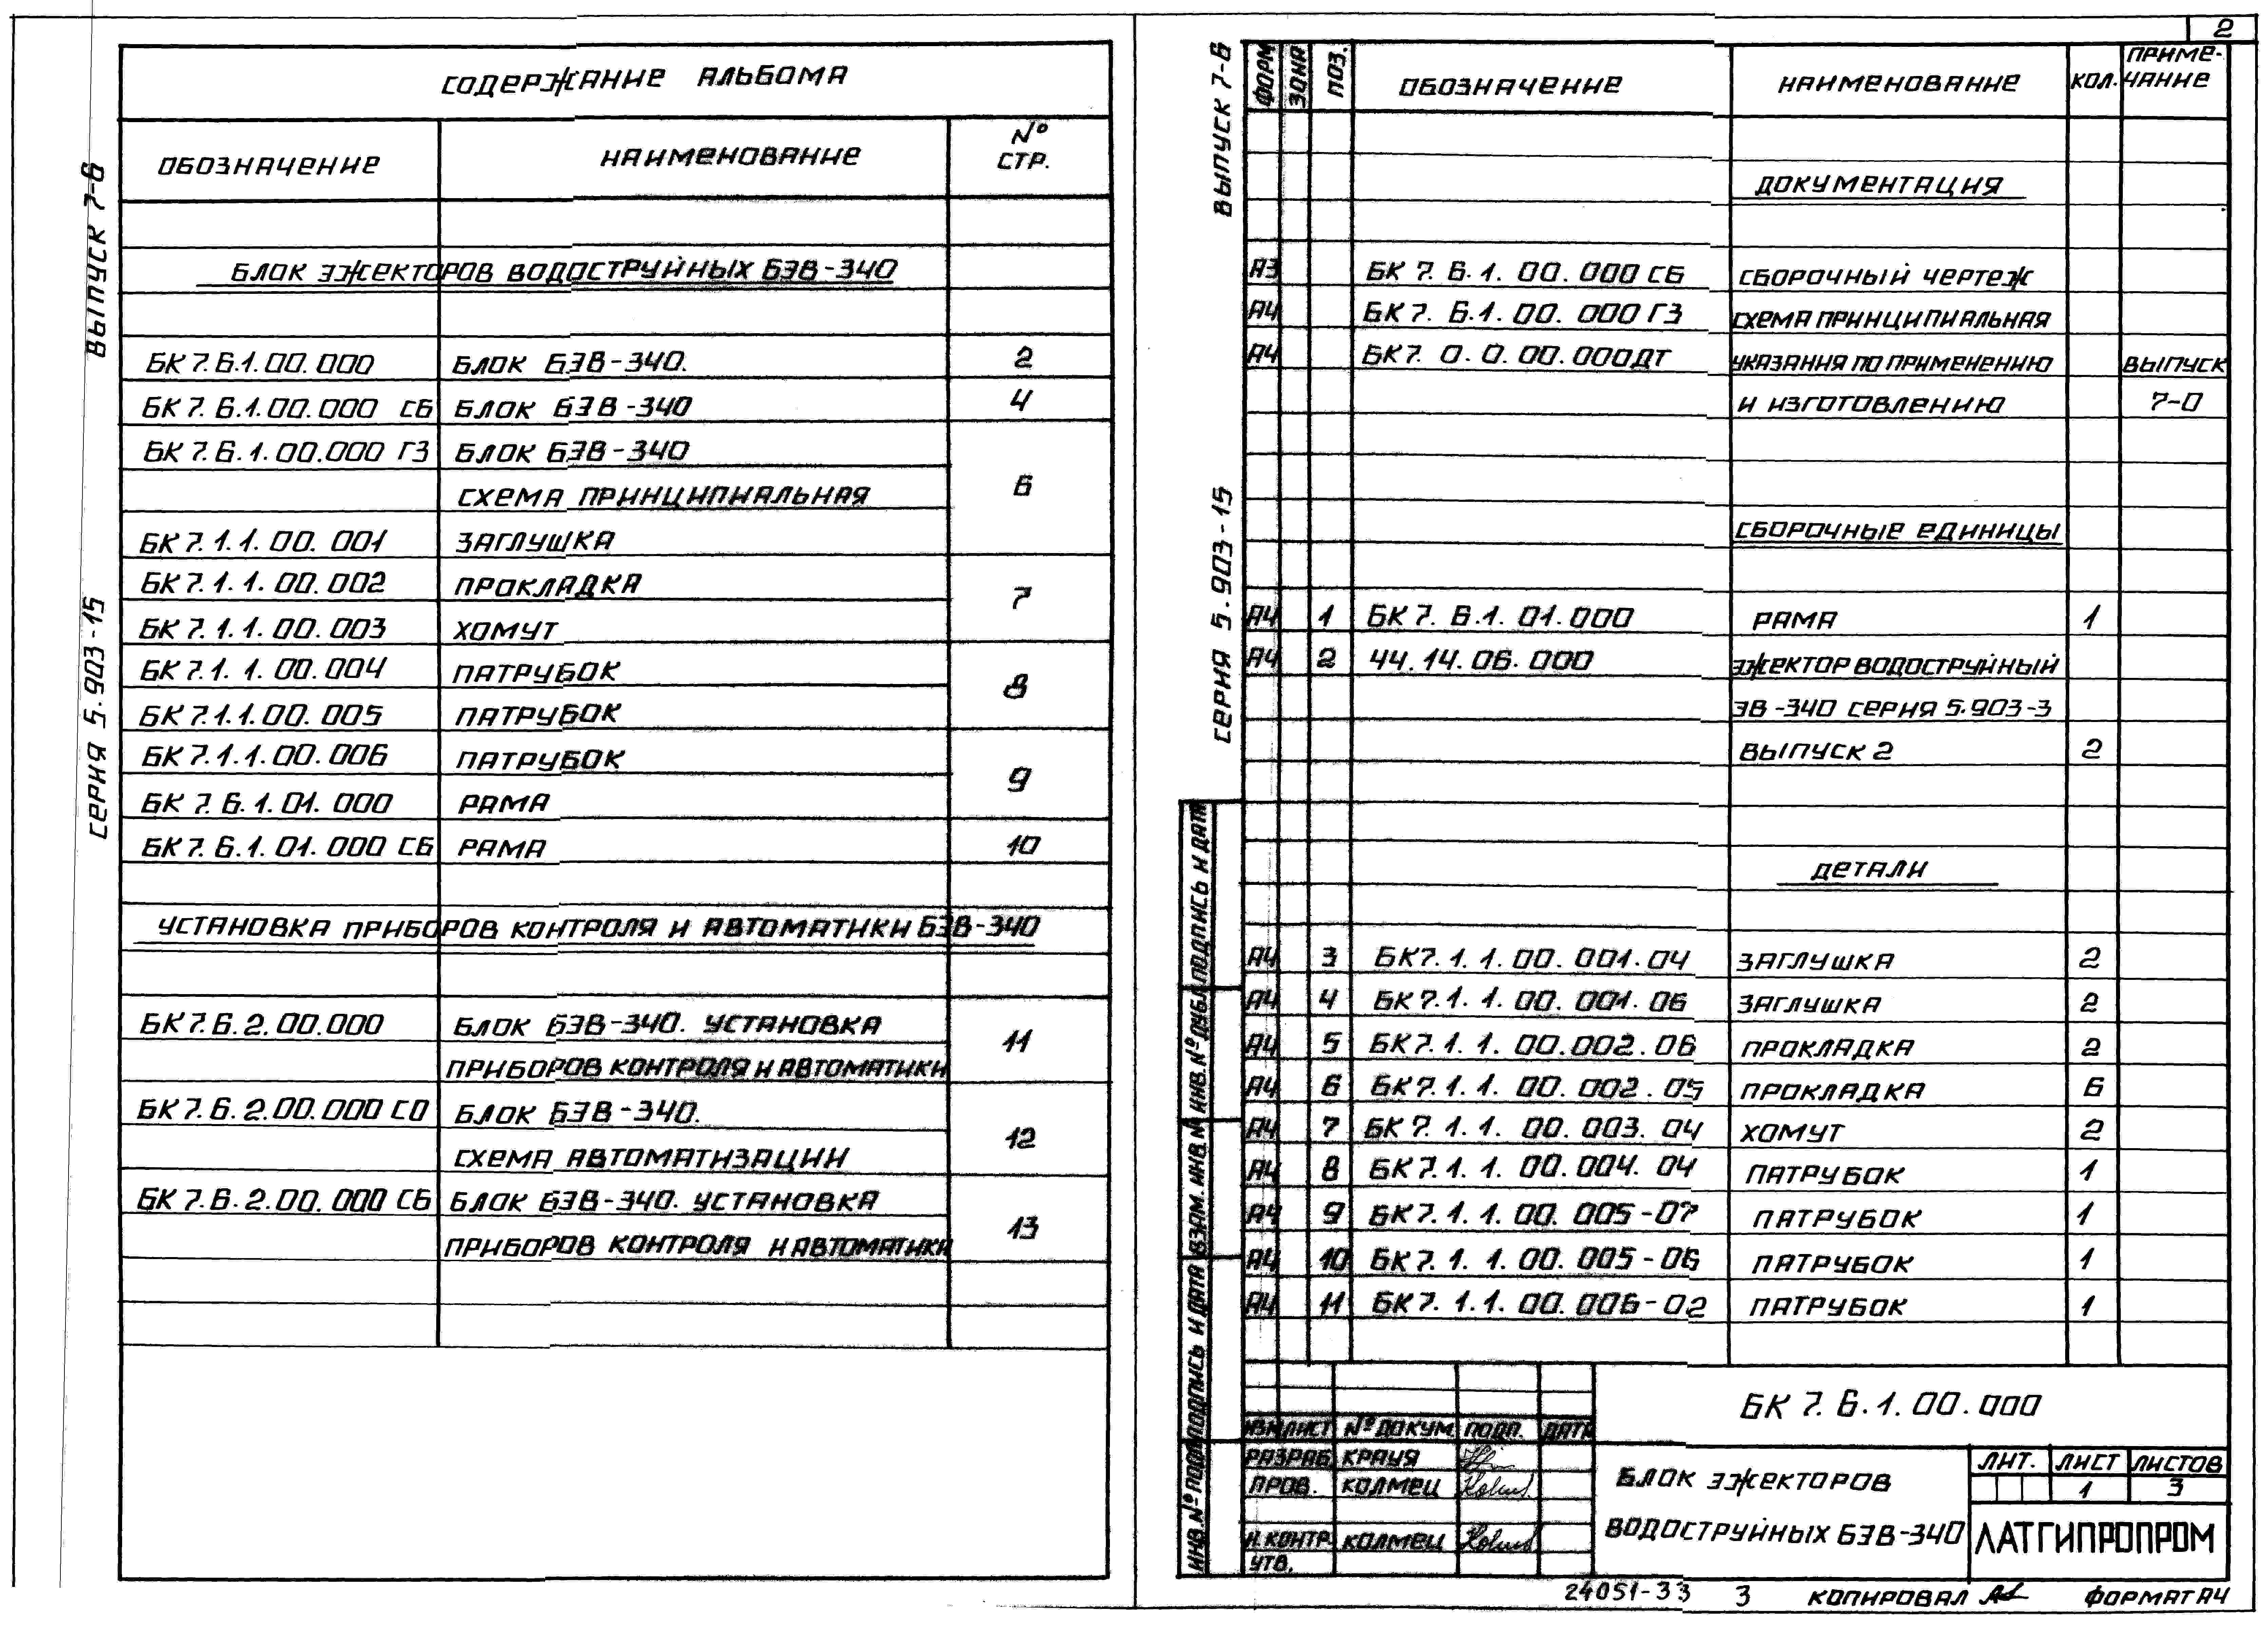 СОДЕРЖАНИЕ АЛЬБОМА
ОБОЗНАЧЕНИЕ НАИМЕНОВАНИЕ № СТР.
БЛОК ЭЖЕКТОРОВ ВОДОСТРУЙНЫХ БЭВ-340
БК 7.6.1.00.000 БЛОК БЭВ-340. 2
БК 7.6.1.00.000 СБ БЛОК БЭВ-340 4
БК 7.6.1.00.000 ГЗ БЛОК БЭВ-340
СХЕМА ПРИНЦИПИАЛЬНАЯ 6
БК 7.1.1.00.001 ЗАГЛУШКА
БК 7.1.1.00.002 ПРОКЛАДКА 7
БК 7.1.1.00.003 ХОМУТ
БК 7.1.1.00.004 ПАТРУБОК 8
БК 7.1.1.00.005 ПАТРУБОК
БК 7.1.1.00.006 ПАТРУБОК 9
БК 7.6.1.01.000 РАМА
БК 7.6.1.01.000 СБ РАМА 10
УСТАНОВКА ПРИБОРОВ КОНТРОЛЯ И АВТОМАТИКИ БЭВ-340
БК 7.6.2.00.000 БЛОК БЭВ-340. УСТАНОВКА 11
ПРИБОРОВ КОНТРОЛЯ И АВТОМАТИКИ
БК 7.6.2.00.000 СО БЛОК БЭВ-340. 12
СХЕМА АВТОМАТИЗАЦИИ
БК 7.6.2.00.000 СБ БЛОК БЭВ-340. УСТАНОВКА 13
ПРИБОРОВ КОНТРОЛЯ И АВТОМАТИКИ
СЕРИЯ 5.903-15 ВЫПУСК 7-6
2
СЕРИЯ 5.903-15 ВЫПУСК 7-6
ФОРМ ЗОНА ПОЗ. ОБОЗНАЧЕНИЕ НАИМЕНОВАНИЕ КОЛ. ПРИМЕ-
ЧАНИЕ
ДОКУМЕНТАЦИЯ
А3 БК 7.6.1.00.000 СБ СБОРОЧНЫЙ ЧЕРТЕЖ
А4 БК 7.6.1.00.000 ГЗ СХЕМА ПРИНЦИПИАЛЬНАЯ
А4 БК 7.0.0.00.000 ДТ УКАЗАНИЯ ПО ПРИМЕНЕНИЮ ВЫПУСК
И ИЗГОТОВЛЕНИЮ 7-0
СБОРОЧНЫЕ ЕДИНИЦЫ
А4 1 БК 7.6.1.01.000 РАМА 1
А4 2 44.14.06.000 ЭЖЕКТОР ВОДОСТРУЙНЫЙ
ЭВ-340 СЕРИЯ 5.903-3
ВЫПУСК 2 2
ДЕТАЛИ
А4 3 БК 7.1.1.00.001.04 ЗАГЛУШКА 2
А4 4 БК 7.1.1.00.001.06 ЗАГЛУШКА 2
А4 5 БК 7.1.1.00.002.06 ПРОКЛАДКА 2
А4 6 БК 7.1.1.00.002.05 ПРОКЛАДКА 6
А4 7 БК 7.1.1.00.003.04 ХОМУТ 2
А4 8 БК 7.1.1.00.004.04 ПАТРУБОК 1
А4 9 БК 7.1.1.00.005-07 ПАТРУБОК 1
А4 10 БК 7.1.1.00.005-06 ПАТРУБОК 1
А4 11 БК 7.1.1.00.006-02 ПАТРУБОК 1
ИНВ.№ ПОДЛ ПОДПИСЬ И ДАТА ВЗАМ.ИНВ.№ ИНВ.№ ДУБЛ ПОДПИСЬ И ДАТА
БК 7.6.1.00.000
ИЗМ ЛИСТ № ДОКУМ ПОДП. ДАТА
РАЗРАБ. КРАУЯ
ПРОВ. КОЛМЕЦ
Н.КОНТР. КОЛМЕЦ
УТВ.
БЛОК ЭЖЕКТОРОВ
ВОДОСТРУЙНЫХ БЭВ-340
ЛИТ. ЛИСТ ЛИСТОВ
1 3
ЛАТГИПРОПРОМ
24051-33 3 КОПИРОВАЛ ФОРМАТ А4